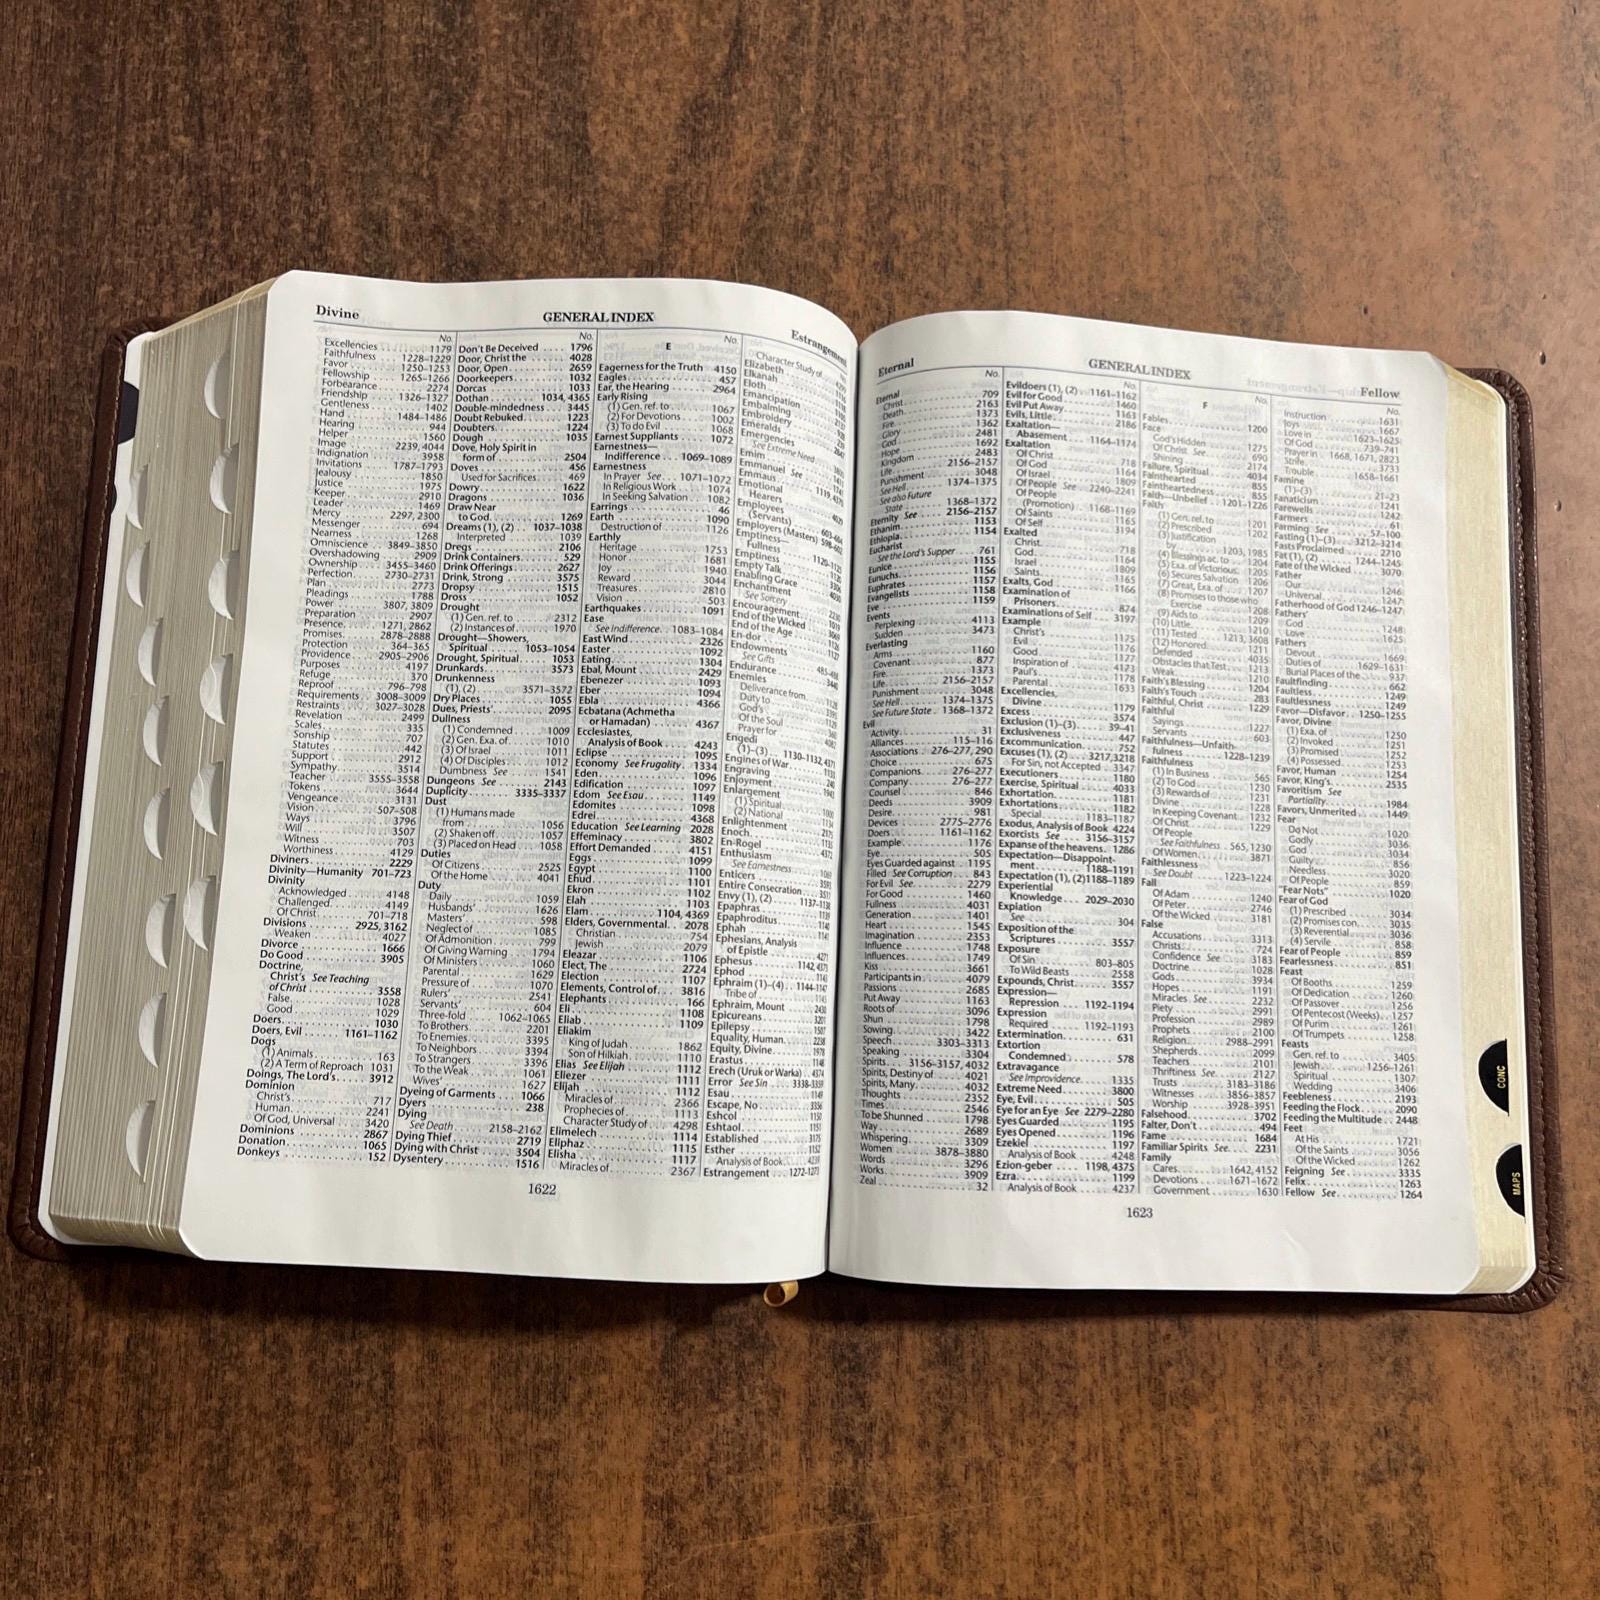 Divine
GENERAL INDEX
Estrangement
No.
Excellencies 1179
Faithfulness 1228–1229
Favor 1250–1253
Fellowship 1265–1266
Forbearance 2274
Friendship 1326–1327
Gentleness 1402
Hand 1484–1486
Hearing 944
Helper 1560
Image 2239, 4044
Indignation 3958
Invitations 1787–1793
Jealousy 1850
Justice 1975
Keeper 2910
Leader 1469
Mercy 2297, 2300
Messenger 694
Nearness 1268
Omniscience 3849–3850
Overshadowing 2909
Ownership 3455–3460
Perfection 2730–2731
Plan 2773
Pleadings 1788
Power 3807, 3809
Preparation 2907
Presence 1271, 2862
Promises 2878–2888
Protection 364–365
Providence 2905–2906
Purposes 4197
Refuge 370
Reproof 796–798
Requirements 3008–3009
Restraints 3027–3028
Revelation 2499
Scales 335
Sonship 707
Statutes 442
Support 2912
Sympathy 3514
Teacher 3555–3558
Tokens 3644
Vengeance 3131
Vision 507–508
Ways 3796
Will 3507
Witness 703
Worthiness 4129
Diviners 2229
Divinity—Humanity 701–723
Divinity
Acknowledged 4148
Challenged 4149
Of Christ 701–718
Divisions 2925, 3162
Weaken 4027
Divorce 1666
Do Good 3905
Doctrine,
Christ's See Teaching
of Christ 3558
False 1028
Good 1029
Doers 1030
Doers, Evil 1161–1162
Dogs
(1) Animals 163
(2) A Term of Reproach 1031
Doings, The Lord's 3912
Dominion
Christ's 717
Human 2241
Of God, Universal 3420
Dominions 2867
Donation 1065
Donkeys 152
No.
Don't Be Deceived 1796
Door, Christ the 4028
Door, Open 2659
Doorkeepers 1032
Dorcas 1033
Dothan 1034, 4365
Double-mindedness 3445
Doubt Rebuked 1223
Doubters 1224
Dough 1035
Dove, Holy Spirit in
form of 2504
Doves 456
Used for Sacrifices 469
Dowry 1622
Dragons 1036
Draw Near
to God 1269
Dreams (1), (2) 1037–1038
Interpreted 1039
Dregs 2106
Drink Containers 529
Drink Offerings 2627
Drink, Strong 3575
Dropsy 1515
Dross 1052
Drought
(1) Gen. ref. to 2312
(2) Instances of 1970
Drought—Showers,
Spiritual 1053–1054
Drought, Spiritual 1053
Drunkards 3573
Drunkenness
(1), (2) 3571–3572
Dry Places 1055
Dues, Priests' 2095
Dullness
(1) Condemned 1009
(2) Gen. Exa. of 1010
(3) Of Israel 1011
(4) Of Disciples 1012
Dumbness See 1541
Dungeons See 2143
Duplicity 3335–3337
Dust
(1) Humans made
from 1056
(2) Shaken off 1057
(3) Placed on Head 1058
Duties
Of Citizens 2525
Of the Home 4041
Duty
Daily 1059
Husbands' 1626
Masters' 598
Neglect of 1085
Of Admonition 799
Of Giving Warning 1794
Of Ministers 1060
Parental 1629
Pressure of 1070
Rulers' 2541
Servants' 604
Three-fold 1062–1065
To Brothers 2201
To Enemies 3395
To Neighbors 3394
To Strangers 3396
To the Weak 1061
Wives' 1627
Dyeing of Garments 1066
Dyers 238
Dying
See Death 2158–2162
Dying Thief 2719
Dying with Christ 3504
Dysentery 1516
No.
E
Eagerness for the Truth 4150
Eagles 457
Ear, the Hearing 2964
Early Rising
(1) Gen. ref. to 1067
(2) For Devotions 1002
(3) To do Evil 1068
Earnest Suppliants 1072
Earnestness—
Indifference 1069–1089
Earnestness
In Prayer See 1071–1072
In Religious Work 1074
In Seeking Salvation 1082
Earrings 46
Earth 1090
Destruction of 1126
Earthly
Heritage 1753
Honor 1681
Joy 1940
Reward 3044
Treasures 2810
Vision 503
Earthquakes 1091
Ease
See Indifference 1083–1084
East Wind 2326
Easter 1092
Eating 1304
Ebal, Mount 2429
Ebenezer 1093
Eber 1094
Ebla 4366
Ecbatana (Achmetha
or Hamadan) 4367
Ecclesiastes,
Analysis of Book 4243
Eclipse 1095
Economy See Frugality 1334
Eden 1096
Edification 1097
Edom See Esau 1149
Edomites 1098
Edrei 4368
Education See Learning 2028
Effeminacy 3802
Effort Demanded 4151
Eggs 1099
Egypt 1100
Ehud 1101
Ekron 1102
Elah 1103
Elam 1104, 4369
Elders, Governmental 2078
Christian 754
Jewish 2079
Eleazar 1106
Elect, The 2724
Election 1107
Elements, Control of 3816
Elephants 166
Eli 1108
Eliab 1109
Eliakim
King of Judah 1862
Son of Hilkiah 1110
Elias See Elijah 1112
Eliezer 1111
Elijah 1112
Miracles of 2366
Prophecies of 1113
Character Study of 4298
Elimelech 1114
Eliphaz 1115
Elisha 1117
Miracles of 2367
Character Study of
Elizabeth
Elkanah
Eloth
Emancipation
Embalming
Embroidery
Emeralds
Emergencies
See Extreme Need
Emim
Emmanuel See
Emmaus
Emotional
Hearers
Employees
(Servants) 603–604
Employers (Masters) 598–602
Emptiness—
Fullness
Emptiness
Empty Talk
Enabling Grace
Enchantment
See Sorcery
Encouragement
End of the Wicked
End of the Age
En-dor
Endowments
See Gifts
Endurance
Enemies
Deliverance from
Duty to
God's
Of the Soul
Prayer for
Engedi
(1)–(3) 1130–1132, 4371
Engines of War
Engraving
Enjoyment
Enlargement
(1) Spiritual
(2) National
Enlightenment
Enoch
En-Rogel
Enthusiasm
See Earnestness
Enticers
Entire Consecration
Envy (1), (2) 1137–1138
Epaphras
Epaphroditus
Ephah
Ephesians, Analysis
of Epistle
Ephesus 1142, 4373
Ephod
Ephraim (1)–(4) 1144–1147
Tribe of
Ephraim, Mount
Epicureans
Epilepsy
Equality, Human
Equity, Divine
Erastus
Erech (Uruk or Warka) 4374
Error See Sin 3338–3339
Esau
Escape, No
Eshcol
Eshtaol
Established
Esther
Analysis of Book
Estrangement 1272–1273
1622
Eternal
GENERAL INDEX
Fellow
No.
Eternal 709
Christ 2163
Death 1373
Fire 1362
Glory 2481
God 1692
Hope 2483
Kingdom 2156–2157
Life 3048
Punishment 1374–1375
See Hell
See also Future
State 1368–1372
Eternity See 2156–2157
Ethanim 1153
Ethiopia 1154
Eucharist
See the Lord's Supper 761
Eunice 1155
Eunuchs 1156
Euphrates 1157
Evangelists 1158
Eve 1159
Events
Perplexing 4113
Sudden 3473
Everlasting
Arms 1160
Covenant 877
Fire 1373
Life 2156–2157
Punishment 3048
See Hell 1374–1375
See Future State 1368–1372
Evil
Activity 31
Alliances 115–116
Associations 276–277, 290
Choice 675
Companions 276–277
Company 276–277
Counsel 846
Deeds 3909
Desire 981
Devices 2775–2776
Doers 1161–1162
Example 1176
Eye 505
Eyes Guarded against 1195
Filled See Corruption 843
For Evil See 2279
For Good 1460
Fullness 4031
Generation 1401
Heart 1545
Imagination 2353
Influence 1748
Influences 1749
Kiss 3661
Participants in 4079
Passions 2685
Put Away 1163
Roots of 3096
Shun 1798
Sowing 3422
Speech 3303–3313
Speaking 3304
Spirits 3156–3157, 4032
Spirits, Destiny of 4021
Spirits, Many 4032
Thoughts 2352
Times 2546
To be Shunned 1798
Way 2689
Whispering 3309
Women 3878–3880
Words 3296
Works 3909
Zeal 32
No.
Evildoers (1), (2) 1161–1162
Evil for Good 1460
Evil Put Away 1163
Evils, Little 2186
Exaltation—
Abasement 1164–1174
Exaltation
Of Christ 718
Of God 1164
Of Israel 1809
Of People See 2240–2241
Of People
(Promotion) 1168–1169
Of Saints 1165
Of Self 1194
Exalted
Christ 718
God 1164
Israel 1809
Saints 1165
Exalts, God 1166
Examination of
Prisoners 874
Examinations of Self 3197
Example
Christ's 1175
Evil 1176
Good 1177
Inspiration of 4173
Paul's 1178
Parental 1633
Excellencies,
Divine 1179
Excess 3574
Exclusion (1)–(3) 39–41
Exclusiveness 447
Excommunication 752
Excuses (1), (2) 3217, 3218
For Sin, not Accepted 3347
Executioners 1180
Exercise, Spiritual 4033
Exhortation 1181
Exhortations 1182
Special 1183–1187
Exodus, Analysis of Book 4224
Exorcists See 3156–3157
Expanse of the heavens 1286
Expectation—Disappoint-
ment 1188–1191
Expectation (1), (2) 1188–1189
Experiential
Knowledge 2029–2030
Expiation
See 304
Exposition of the
Scriptures 3557
Exposure
Of Sin 803–805
To Wild Beasts 2558
Expounds, Christ 3557
Expression—
Repression 1192–1194
Expression
Required 1192–1193
Extermination 631
Extortion
Condemned 578
Extravagance
See Improvidence 1335
Extreme Need 3800
Eye, Evil 505
Eye for an Eye See 2279–2280
Eyes Guarded 1195
Eyes Opened 1196
Ezekiel 1197
Analysis of Book 4248
Ezion-geber 1198, 4375
Ezra 1199
Analysis of Book 4237
No.
F
Fables 1200
Face
God's Hidden 1275
Of Christ See 690
Shining 2174
Failure, Spiritual 4034
Fainthearted 855
Faintheartedness 855
Faith—Unbelief 1201–1226
Faith
(1) Gen. ref. to 1201
(2) Prescribed 1202
(3) Justification
by 1203, 1985
(4) Blessings ac. to 1204
(5) Exa. of Victorious 1205
(6) Secures Salvation 1206
(7) Great, Exa. of 1207
(8) Promises to those who
Exercise 1208
(9) Aids to 1209
(10) Little 1210
(11) Tested 1213, 3608
(12) Honored 1211
Defended 4035
Obstacles that Test 1213
Weak 1210
Faith's Blessing 1204
Faith's Touch 283
Faithful, Christ 1229
Faithful
Sayings 1227
Servants 603
Faithfulness—Unfaith-
fulness 1228–1239
Faithfulness
(1) In Business 565
(2) To God 1230
(3) Rewards of 1231
Divine 1228
In Keeping Covenant 1232
Of Christ 1229
Of People
See Faithfulness 565, 1230
Of Women 3871
Faithlessness
See Doubt 1223–1224
Fall
Of Adam 1240
Of Peter 2746
Of the Wicked 3181
False
Accusations 3313
Christs 724
Confidence See 3183
Doctrine 1028
Gods 3934
Hopes 1191
Miracles See 2232
Piety 2991
Profession 2989
Prophets 2100
Religion 2988–2991
Shepherds 2099
Teachers 2101
Thriftiness See 2127
Trusts 3183–3186
Witnesses 3856–3857
Worship 3928–3951
Falsehood 3702
Falter, Don't 494
Fame 1684
Familiar Spirits See 2231
Family
Cares 1642, 4152
Devotions 1671–1672
Government 1630
No.
Instruction 1631
Joys 1667
Love in 1623–1625
Of God 739–741
Prayer in 1668, 1671, 2823
Strife 3733
Trouble 1658–1661
Famine
(1)–(3) 21–23
Fanaticism 1241
Farewells 1242
Farmers 61
Farming See 57–100
Fasting (1)–(3) 3212–3214
Fasts Proclaimed 2710
Fat (1), (2) 1244–1245
Fate of the Wicked 3070
Father
Our 1246
Universal 1247
Fatherhood of God 1246–1247
Fathers'
God 1248
Love 1625
Fathers
Devout 1669
Duties of 1629–1631
Burial Places of the 937
Faultfinding 662
Faultless 1249
Faultlessness 1249
Favor—Disfavor 1250–1255
Favor, Divine
(1) Exa. of 1250
(2) Invoked 1251
(3) Promised 1252
(4) Possessed 1253
Favor, Human 1254
Favor, King's 2535
Favoritism See
Partiality 1984
Favors, Unmerited 1449
Fear
Do Not 1020
Godly 3036
God 3034
Guilty 856
Needless 3020
Of People 859
"Fear Nots" 1020
Fear of God
(1) Prescribed 3034
(2) Promises con. 3035
(3) Reverential 3036
(4) Servile 858
Fear of People 859
Fearlessness 851
Feast
Of Booths 1259
Of Dedication 1260
Of Passover 1256
Of Pentecost (Weeks) 1257
Of Purim 1261
Of Trumpets 1258
Feasts
Gen. ref. to 3405
Jewish 1256–1261
Spiritual 1307
Wedding 3406
Feebleness 2193
Feeding the Flock 2090
Feeding the Multitude 2448
Feet
At His 1721
Of the Saints 3056
Of the Wicked 1262
Feigning See 3335
Felix 1263
Fellow See 1264
1623
CONC
MAPS